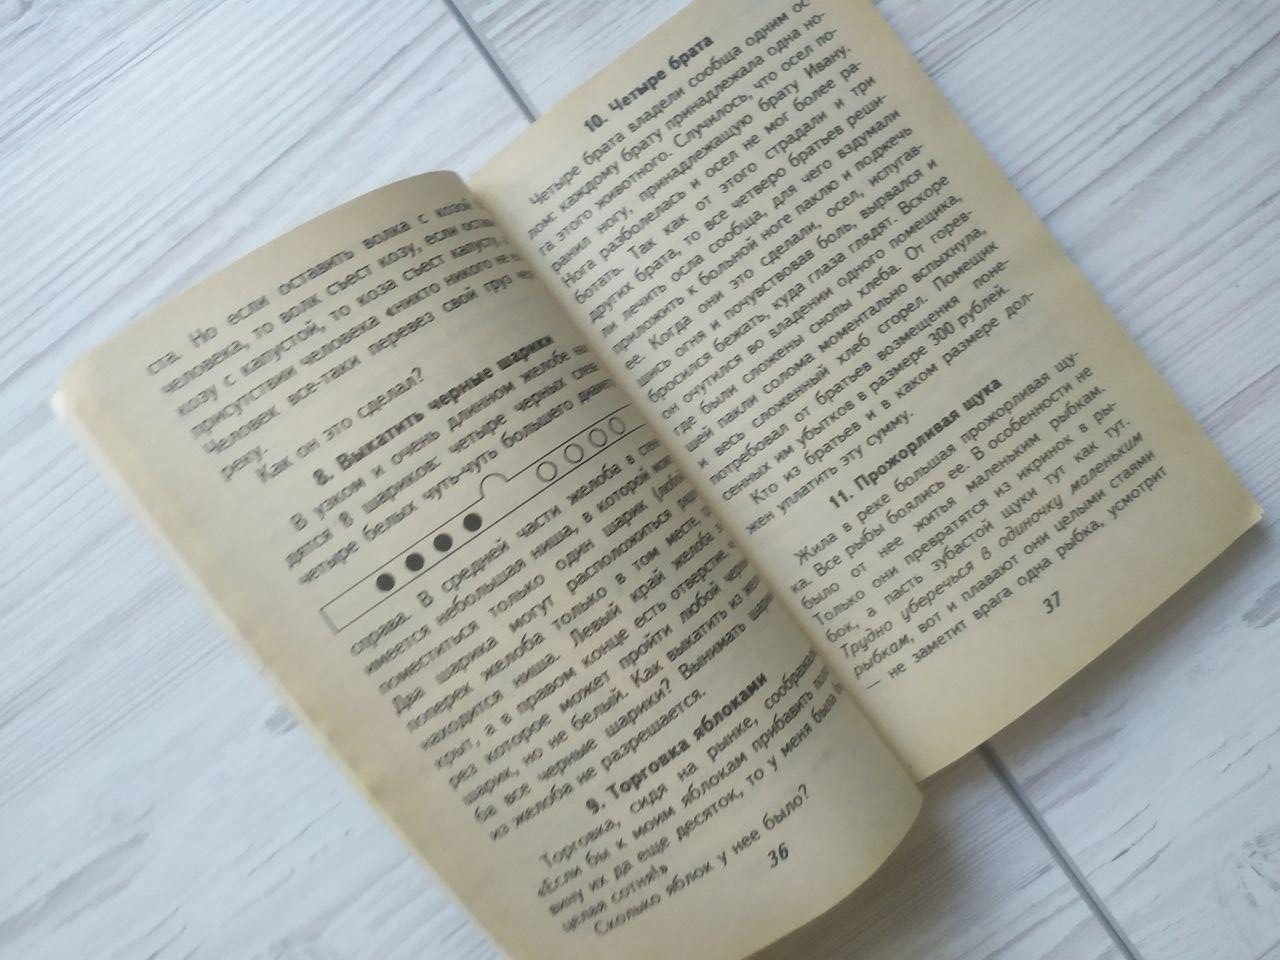 ста. Но если оставить волка с козой
человека, то волк съест козу, если остав
козу с капустой, то коза съест капусту,
присутствии человека «никто никого не
Человек все-таки перевез свой груз че
реку.
Как он это сделал?
8. Выкатить черные шарики
В узком и очень длинном желобе на
дятся 8 шариков: четыре черных сле
четыре белых чуть-чуть большего диаме
справа. В средней части желоба в сте
имеется небольшая ниша, в которой мож
поместиться только один шарик (любо
Два шарика могут расположиться
поперек желоба только в том месте,
находится ниша. Левый край желоба
крыт, а в правом конце есть отверстие,
рез которое может пройти любой черн
шарик, но не белый. Как выкатить из жел
ба все черные шарики? Вынимать шари
из желоба не разрешается.
9. Торговка яблоками
Торговка, сидя на рынке, сообража
«Если бы к моим яблокам прибавить поло
вину их да еще десяток, то у меня была б
целая сотня!»
Сколько яблок у нее было?
36
10. Четыре брата
Четыре брата владели сообща одним ос
лом: каждому брату принадлежала одна но-
га этого животного. Случилось, что осел по-
ранил ногу, принадлежащую брату Ивану.
Нога разболелась и осел не мог более ра-
ботать. Так как от этого страдали и три
других брата, то все четверо братьев реши-
ли лечить осла сообща, для чего вздумали
приложить к больной ноге паклю и поджечь
ее. Когда они это сделали, осел, испугав-
шись огня и почувствовав боль, вырвался и
бросился бежать, куда глаза глядят. Вскоре
он очутился во владении одного помещика,
где были сложены снопы хлеба. От горев-
шей пакли солома моментально вспыхнула,
и весь сложенный хлеб сгорел. Помещик
потребовал от братьев возмещения поне-
сенных им убытков в размере 300 рублей.
Кто из братьев и в каком размере дол-
жен уплатить эту сумму.
11. Прожорливая щука
Жила в реке большая прожорливая щу-
ка. Все рыбы боялись ее. В особенности не
было от нее житья маленьким рыбкам.
Только они превратятся из икринок в ры-
бок, а пасть зубастой щуки тут как тут.
Трудно уберечься в одиночку маленьким
рыбкам, вот и плавают они целыми стаями
— не заметит врага одна рыбка, усмотрит
37